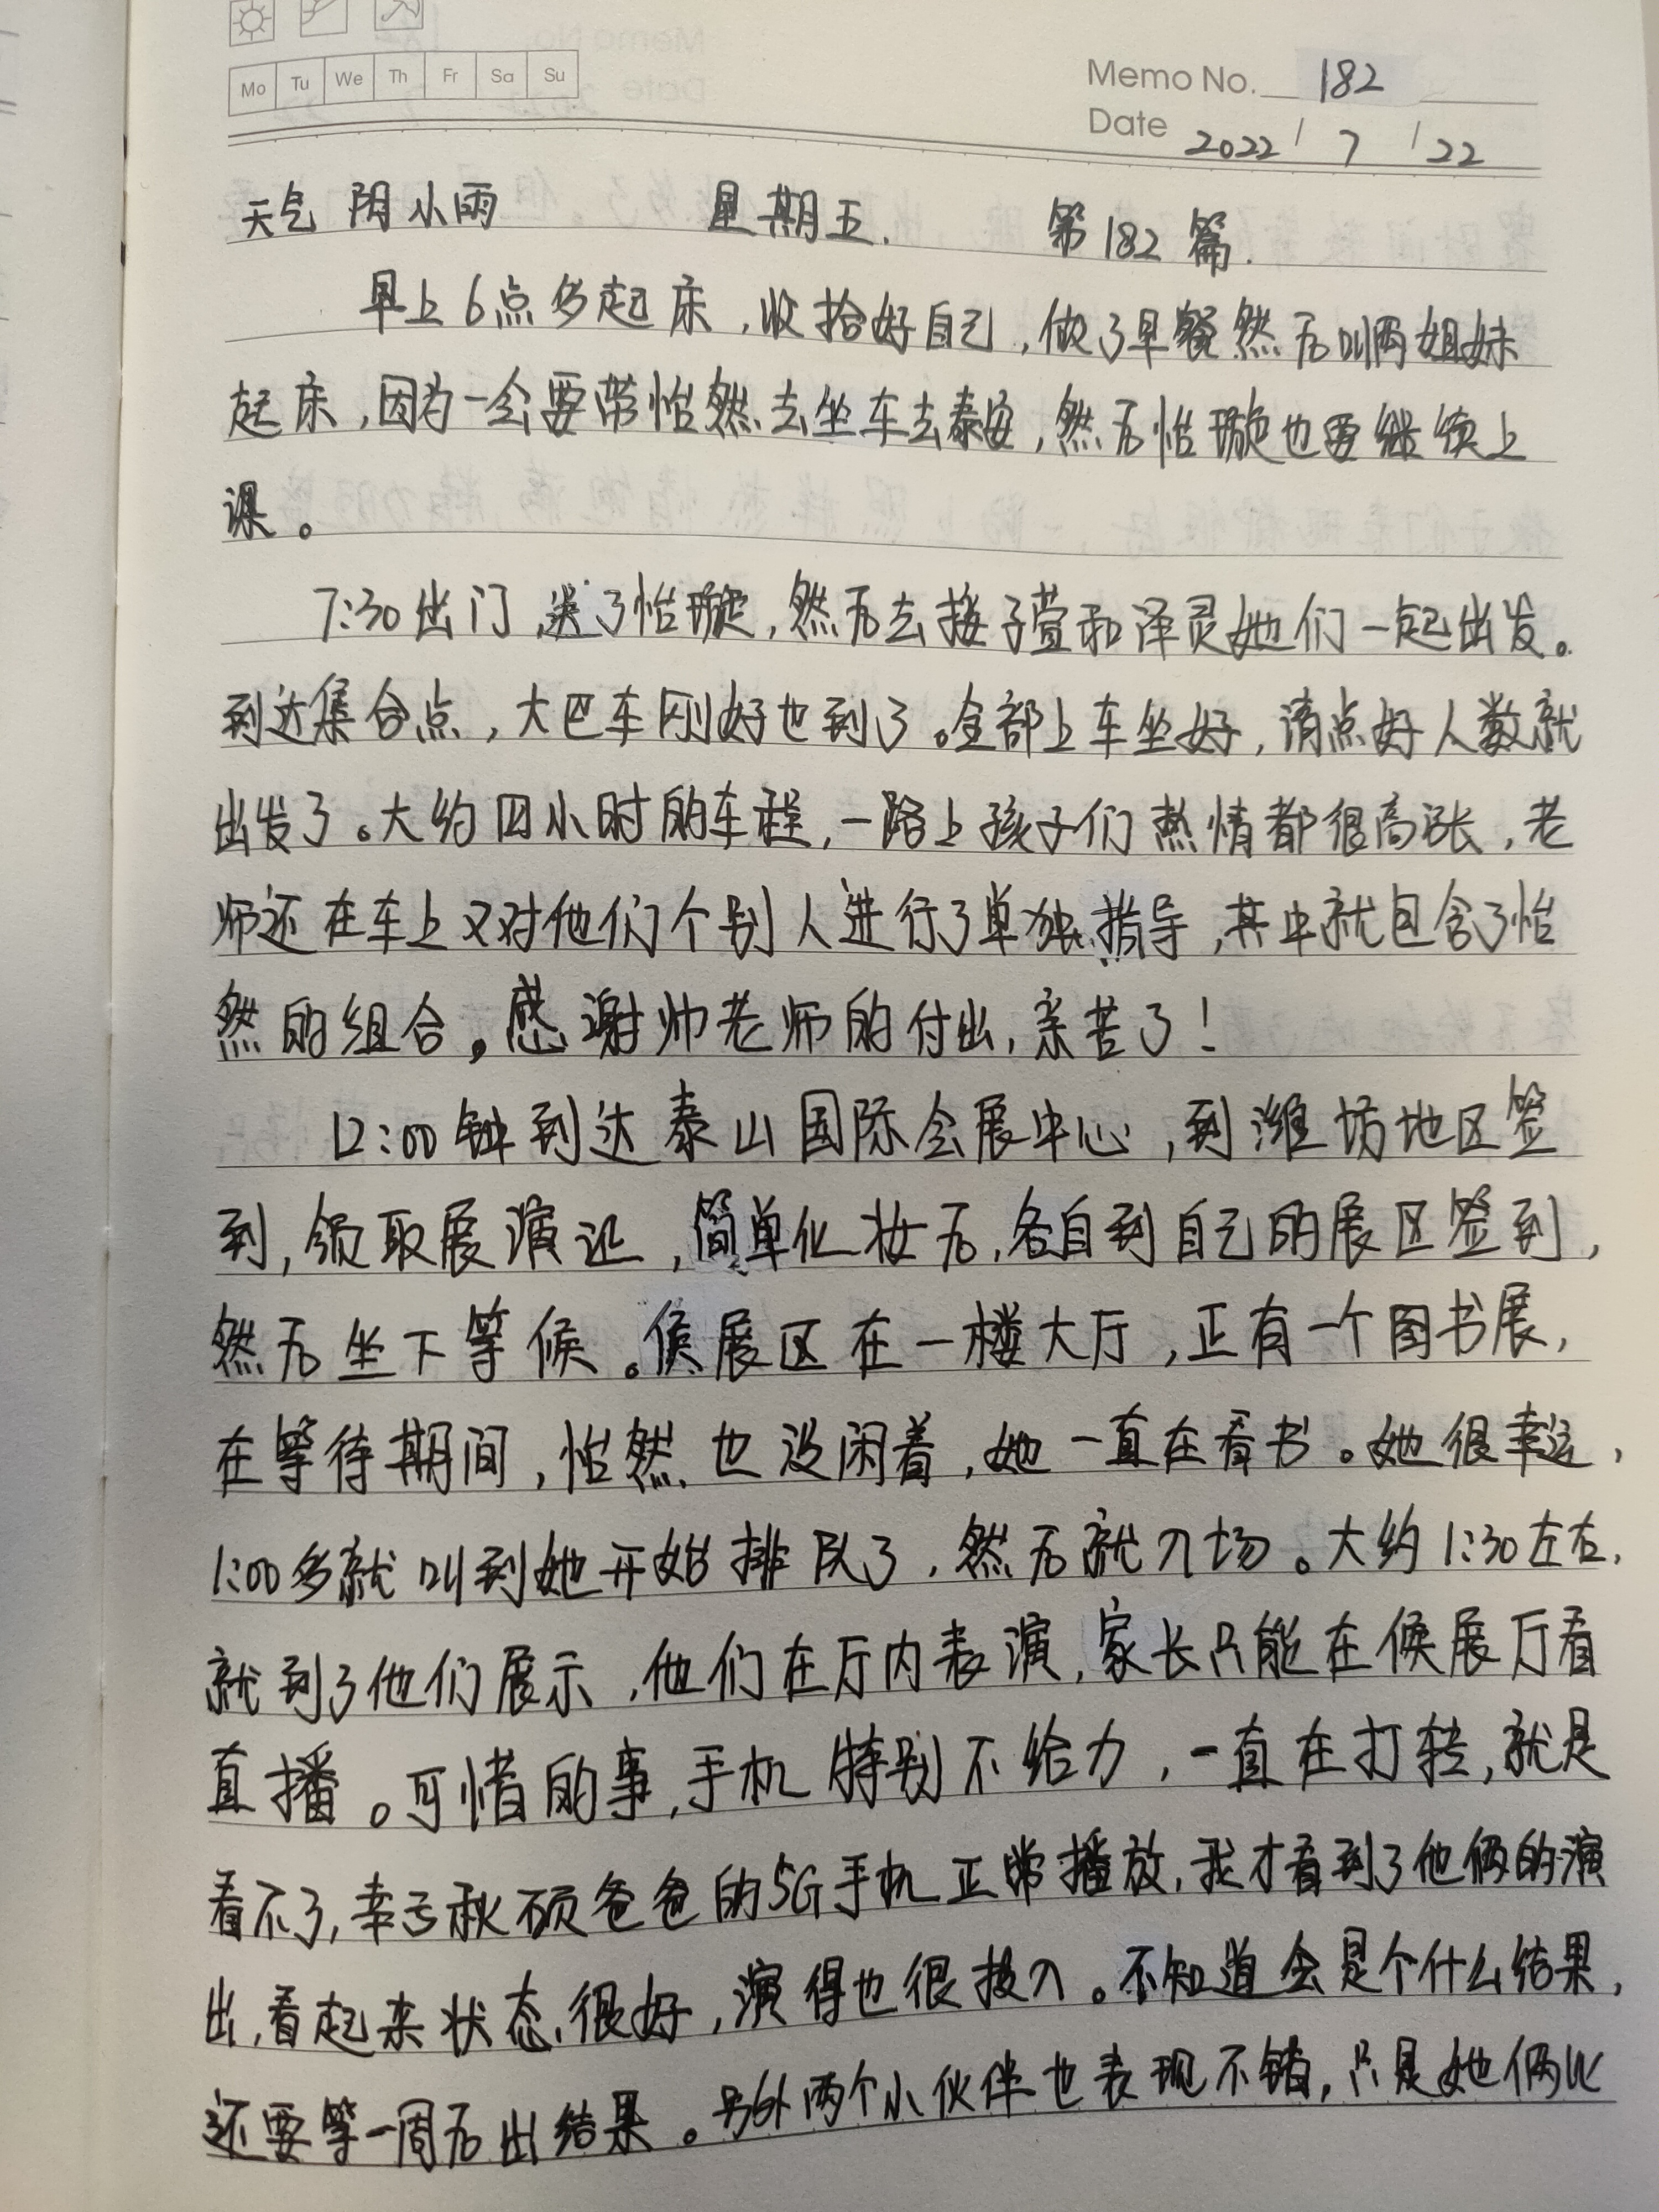 Mo Tu We Th Fr Sa Su
Memo No. 182
Date 2022 / 7 / 22
天气 阴小雨 星期五. 第182篇.
早上6点多起床,收拾好自己,做了早餐然后叫两姐妹
起床,因为一会要带怡然去坐车去泰安,然后怡璇也要继续上
课。
7:30出门,送了怡璇,然后去接子萱和泽灵她们一起出发。
到达集合点,大巴车刚好也到了。全部上车坐好,清点好人数就
出发了。大约四小时的车程,一路上孩子们热情都很高涨,老
师还在车上又对他们个别人进行了单独指导,其中就包含了怡
然的组合。感谢帅老师的付出,亲苦了!
12:00钟到达泰山国际会展中心,到潍坊地区签
到,领取展演证,简单化妆后,各自到自己的展区签到,
然后坐下等候。候展区在一楼大厅,正有一个图书展,
在等待期间,怡然也没闲着,她一直在看书。她很幸运,
1:00多就叫到她开始排队了,然后就入场。大约1:30左右,
就到了他们展示,他们在厅内表演,家长只能在候展厅看
直播。可惜的事,手机特别不给力,一直在打转,就是
看不了,幸亏秋硕爸爸的5G手机正常播放,我才看到了他俩的演
出,看起来状态很好,演得也很投入。不知道会是个什么结果,
还要等一周后出结果。另外两个小伙伴也表现不错,只是她俩比